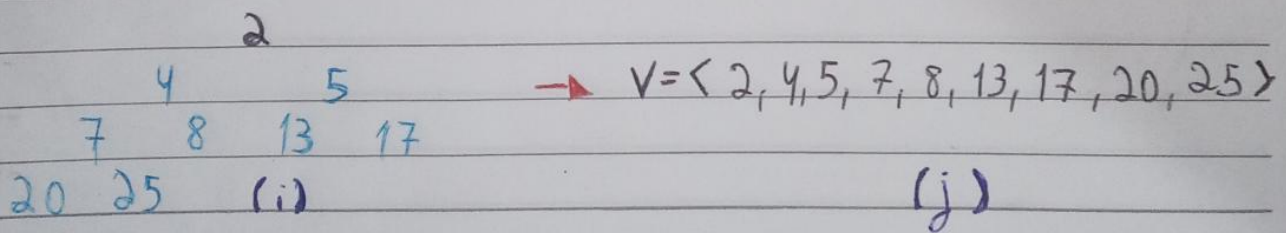 2
4 5 → V=< 2, 4, 5, 7, 8, 13, 17, 20, 25>
7 8 13 17
20 25 (i) (j)